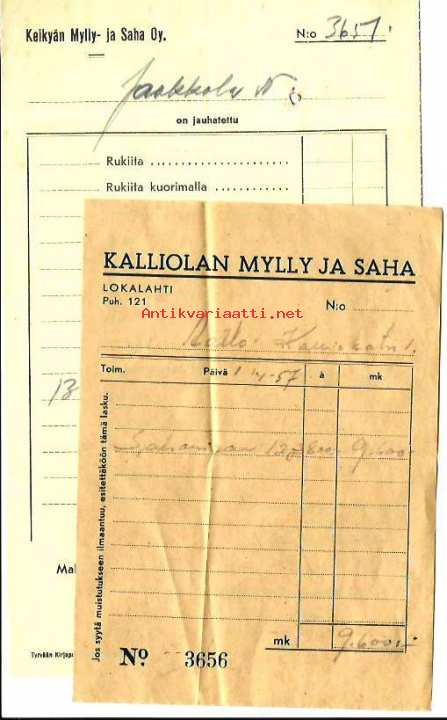 Keikyän Mylly- ja Saha Oy.
N:o 3651.
Jaakkola N
on jauhatettu
Rukiita
Rukiita kuorimalla
13
Mak
Tyrvään Kirjapa
KALLIOLAN MYLLY JA SAHA
LOKALAHTI
Puh. 121
N:o
Antikvariaatti.net
Toim. Päivä 1/4-57 à mk
9.600:-
mk 9.600:-
Jos syytä muistutukseen ilmaantuu, esitettäköön tämä lasku.
№ 3656